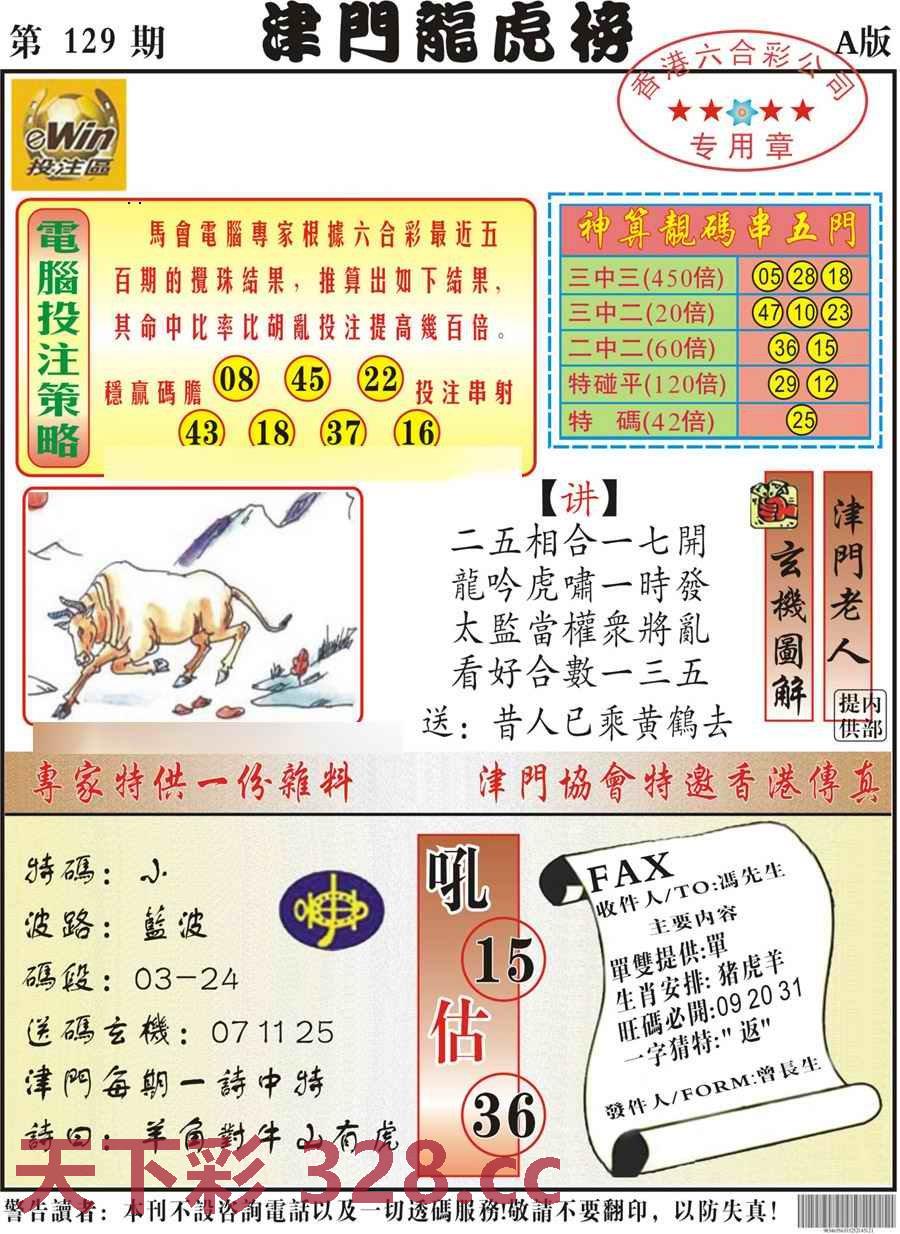 第 129 期
津門龍虎榜
A版
香港六合彩公司
专用章
eWin
投注區
電腦投注策略
馬會電腦專家根據六合彩最近五
百期的攪珠結果，推算出如下結果，
其命中比率比胡亂投注提高幾百倍。
穩贏碼膽 08 45 22 投注串射
43 18 37 16
神算靚碼串五門
三中三(450倍) 05 28 18
三中二(20倍) 47 10 23
二中二(60倍) 36 15
特碰平(120倍) 29 12
特 碼(42倍) 25
【讲】
二五相合一七開
龍吟虎嘯一時發
太監當權衆將亂
看好合數一三五
送：昔人已乘黄鶴去
玄機圖解
津門老人
内部提供
專家特供一份雜料
津門協會特邀香港傳真
特碼：小
波路：藍波
碼段：03-24
送碼玄機：07 11 25
津門每期一詩中特
詩曰：羊角對牛山有虎
吼
15
估
36
FAX
收件人/TO:馮先生
主要内容
單雙提供:單
生肖安排: 猪虎羊
旺碼必開:09 20 31
一字猜特:" 返"
發件人/FORM:曾長生
天下彩 328.cc
警告讀者：本刊不設咨詢電話以及一切透碼服務!敬請不要翻印，以防失真！